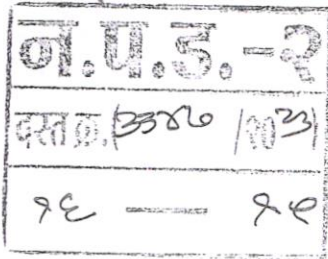 न.प.ड.-२
दस्त क्र.(३३४७ /२०२३)
१६ —